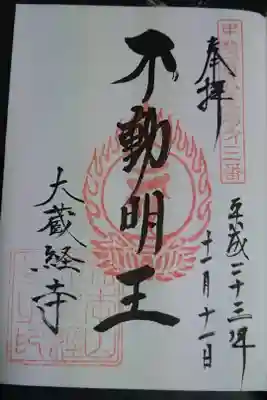 奉拝
平成二十三年
十一月十一日
不動明王
大蔵経寺